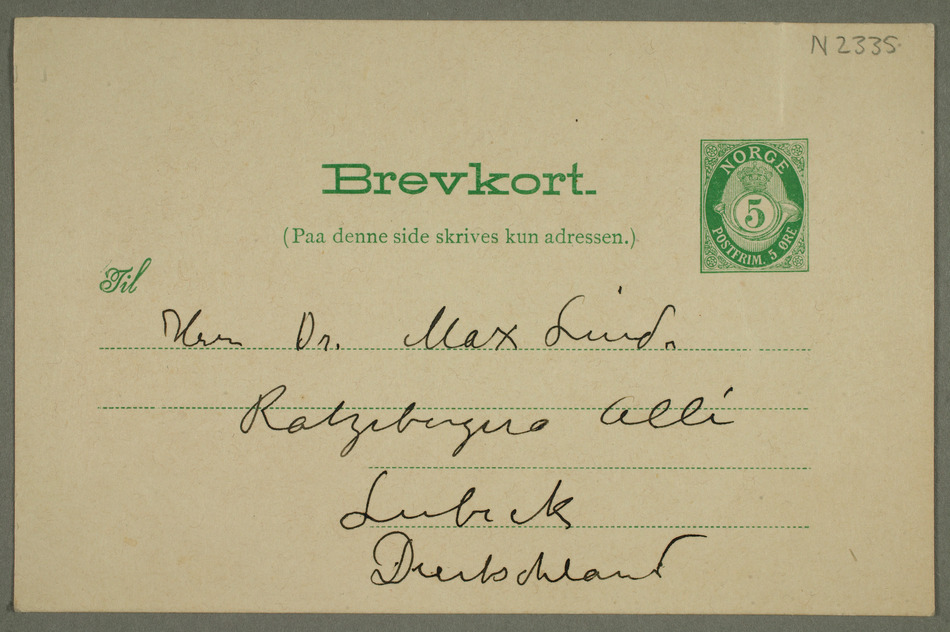 N 2335
Brevkort.
NORGE
5
POSTFRIM. 5 ØRE
(Paa denne side skrives kun adressen.)
Til
Herrn Dr. Max Lind.
Allé
Lubeck
Deutschland